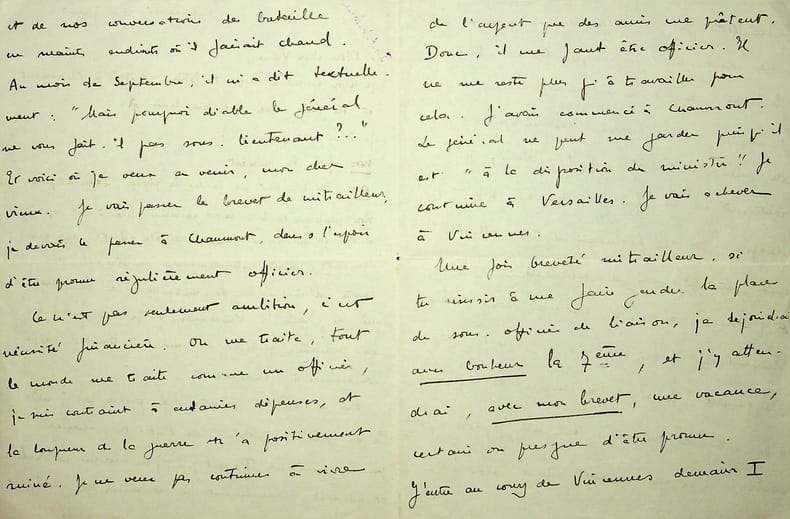 et de nos conversations de bataille
en maints endroits où il faisait chaud.
Au mois de Septembre, il m'a dit textuelle-
ment : "Mais pourquoi diable le général
ne vous fait-il pas sous-lieutenant ?.."
Et voici où je veux en venir, mon cher
vieux. Je vais passer le brevet de mitrailleur,
je devais le passer à Chaumont, dans l'espoir
d'être promu régulièrement officier.
Ce n'est pas seulement ambition, c'est
nécessité financière. On me traite, tout
le monde me traite comme un officier,
je suis contraint à certaines dépenses, et
la longueur de la guerre m'a positivement
ruiné. Je ne veux pas continuer à vivre
de l'argent que des amis me prêtent.
Donc, il me faut être officier. Il
ne me reste plus qu'à travailler pour
cela. J'avais commencé à Chaumont.
Le général ne peut me garder puisqu'il
est "à la disposition du ministre". Je
continue à Versailles. Je vais achever
à Vincennes.
Une fois breveté mitrailleur, si
tu réussis à me faire garder la place
de sous-officier de liaison, je rejoindrai
avec bonheur la 7ème, et j'y atten-
drai, avec mon brevet, une vacance,
certain ou presque d'être promu.
J'entre au cours de Vincennes demain I